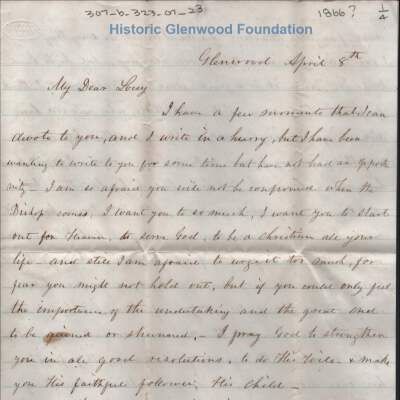 307-b-323-01-23
1866? 1/4
Historic Glenwood Foundation
Glenwood April 8th
My Dear Loury
I have a few moments that I can
devote to you, and I write in a hurry, but I have been
wanting to write to you for some time but have not had an opport
unity - I am so afraid you will not be confirmed when the
Bishop comes, I want you to so much, I want you to start
out for Heaven, to serve God, to be a christian all your
life - and still I am afraid to urge it too much, for
fear you might not hold out, but if you could only feel
the importance of the undertaking and the great end
to be gained or shunned, - I pray God to strengthen
you in all good resolutions, to do His Will & make
you His faithful follower, His Child -